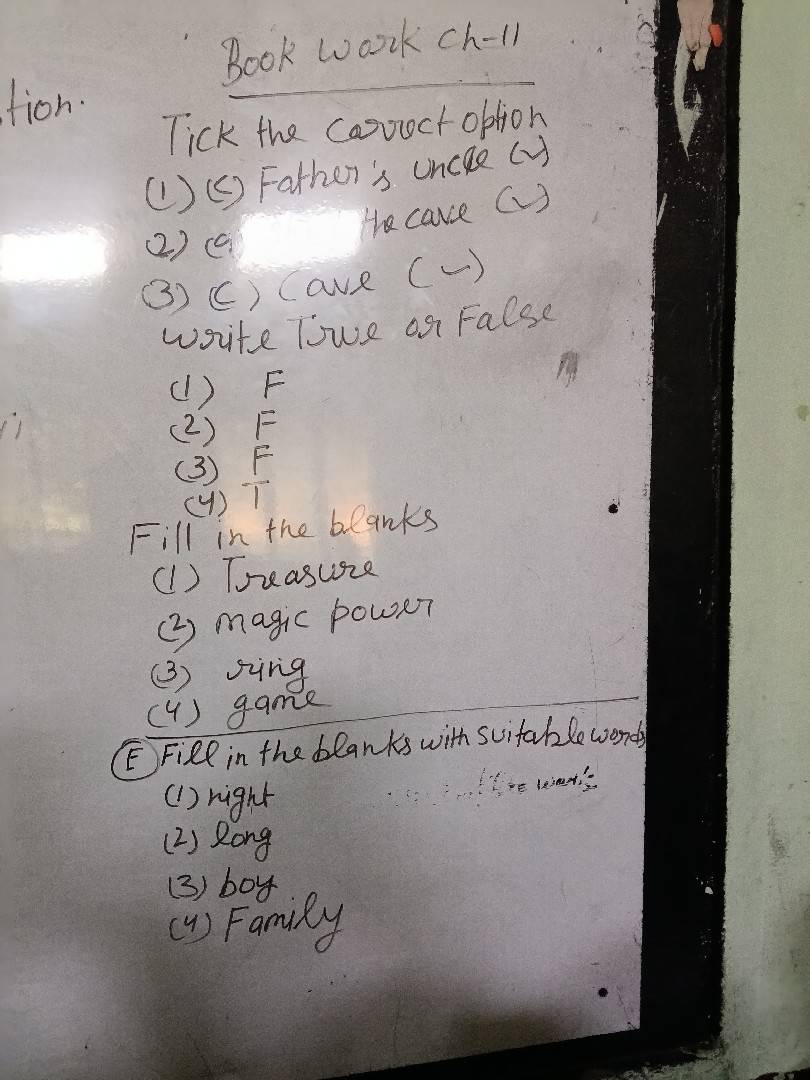 tion.
Book work Ch-11
Tick the correct option
(1) (c) Father's uncle (✓)
2) (a the cave (✓)
(3) (c) Cave (✓)
write True or False
(1) F
(2) F
(3) F
(4) T
Fill in the blanks
(1) Treasure
(2) magic power
(3) ring
(4) game
(E) Fill in the blanks with suitable words
(1) right
(2) long
(3) boy
(4) Family